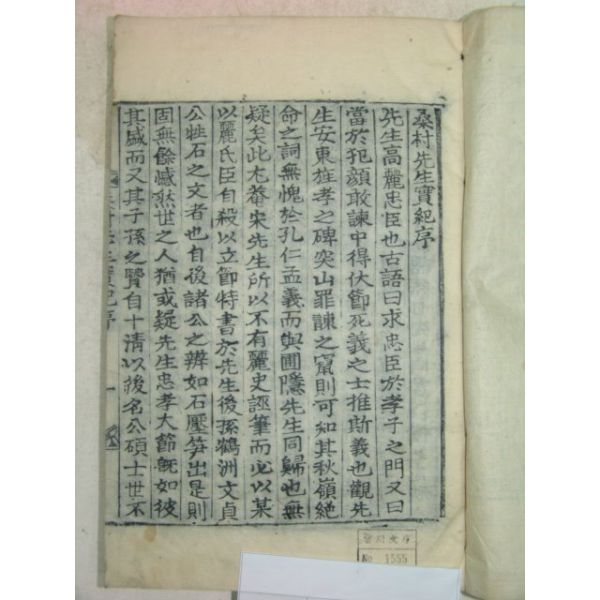 桑村先生實紀序
先生高麗忠臣也古語曰求忠臣於孝子之門又曰
當於犯顔敢諫中得伏節死義之士推斯義也觀先
生安東旌孝之碑突山罪諫之竄則可知其秋嶺絶
命之詞無愧於孔仁孟義而與圃隱先生同歸也無
疑矣此尤菴宋先生所以不有麗史誣筆而見以某
以麗氏臣自殺以立節特書於先生後孫鶴洲文貞
公牲石之文者也自後諸公之辨如石壓笋出是則
固無餘憾然世之人猶或疑先生忠孝大節旣如彼
其盛而又其子孫之賢自十清以後名公碩士世不
桑村先生實紀序 一
文庫
No 1555